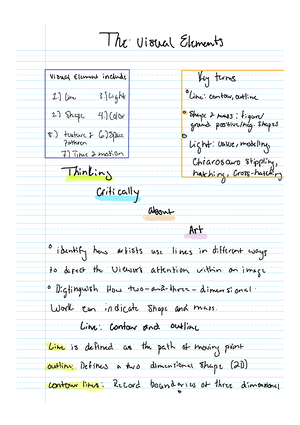 The Visual Elements
Visual Element include
1.) Line 3.) Light
2.) Shape 4.) Color
5.) texture & 6.) Space
Pattren
7.) Time & motion
Key terms
Line: contour, outline
Shape & mass: figure/
ground positive/neg. shapes
Light: value, modeling
Chiaroscuro stippling,
hatching, cross-hatching
Thinking
Critically
about
Art
identify how artists use lines in different ways
to depict the viewers attention within an image
Distinguish How two-and-three-dimensional
Work can indicate shape and mass.
Line: Contour and outline
Line is defined as the path of moving point
outline: Defines a two dimensional shape (2D)
contour lines: Record boundaries of three dimensional